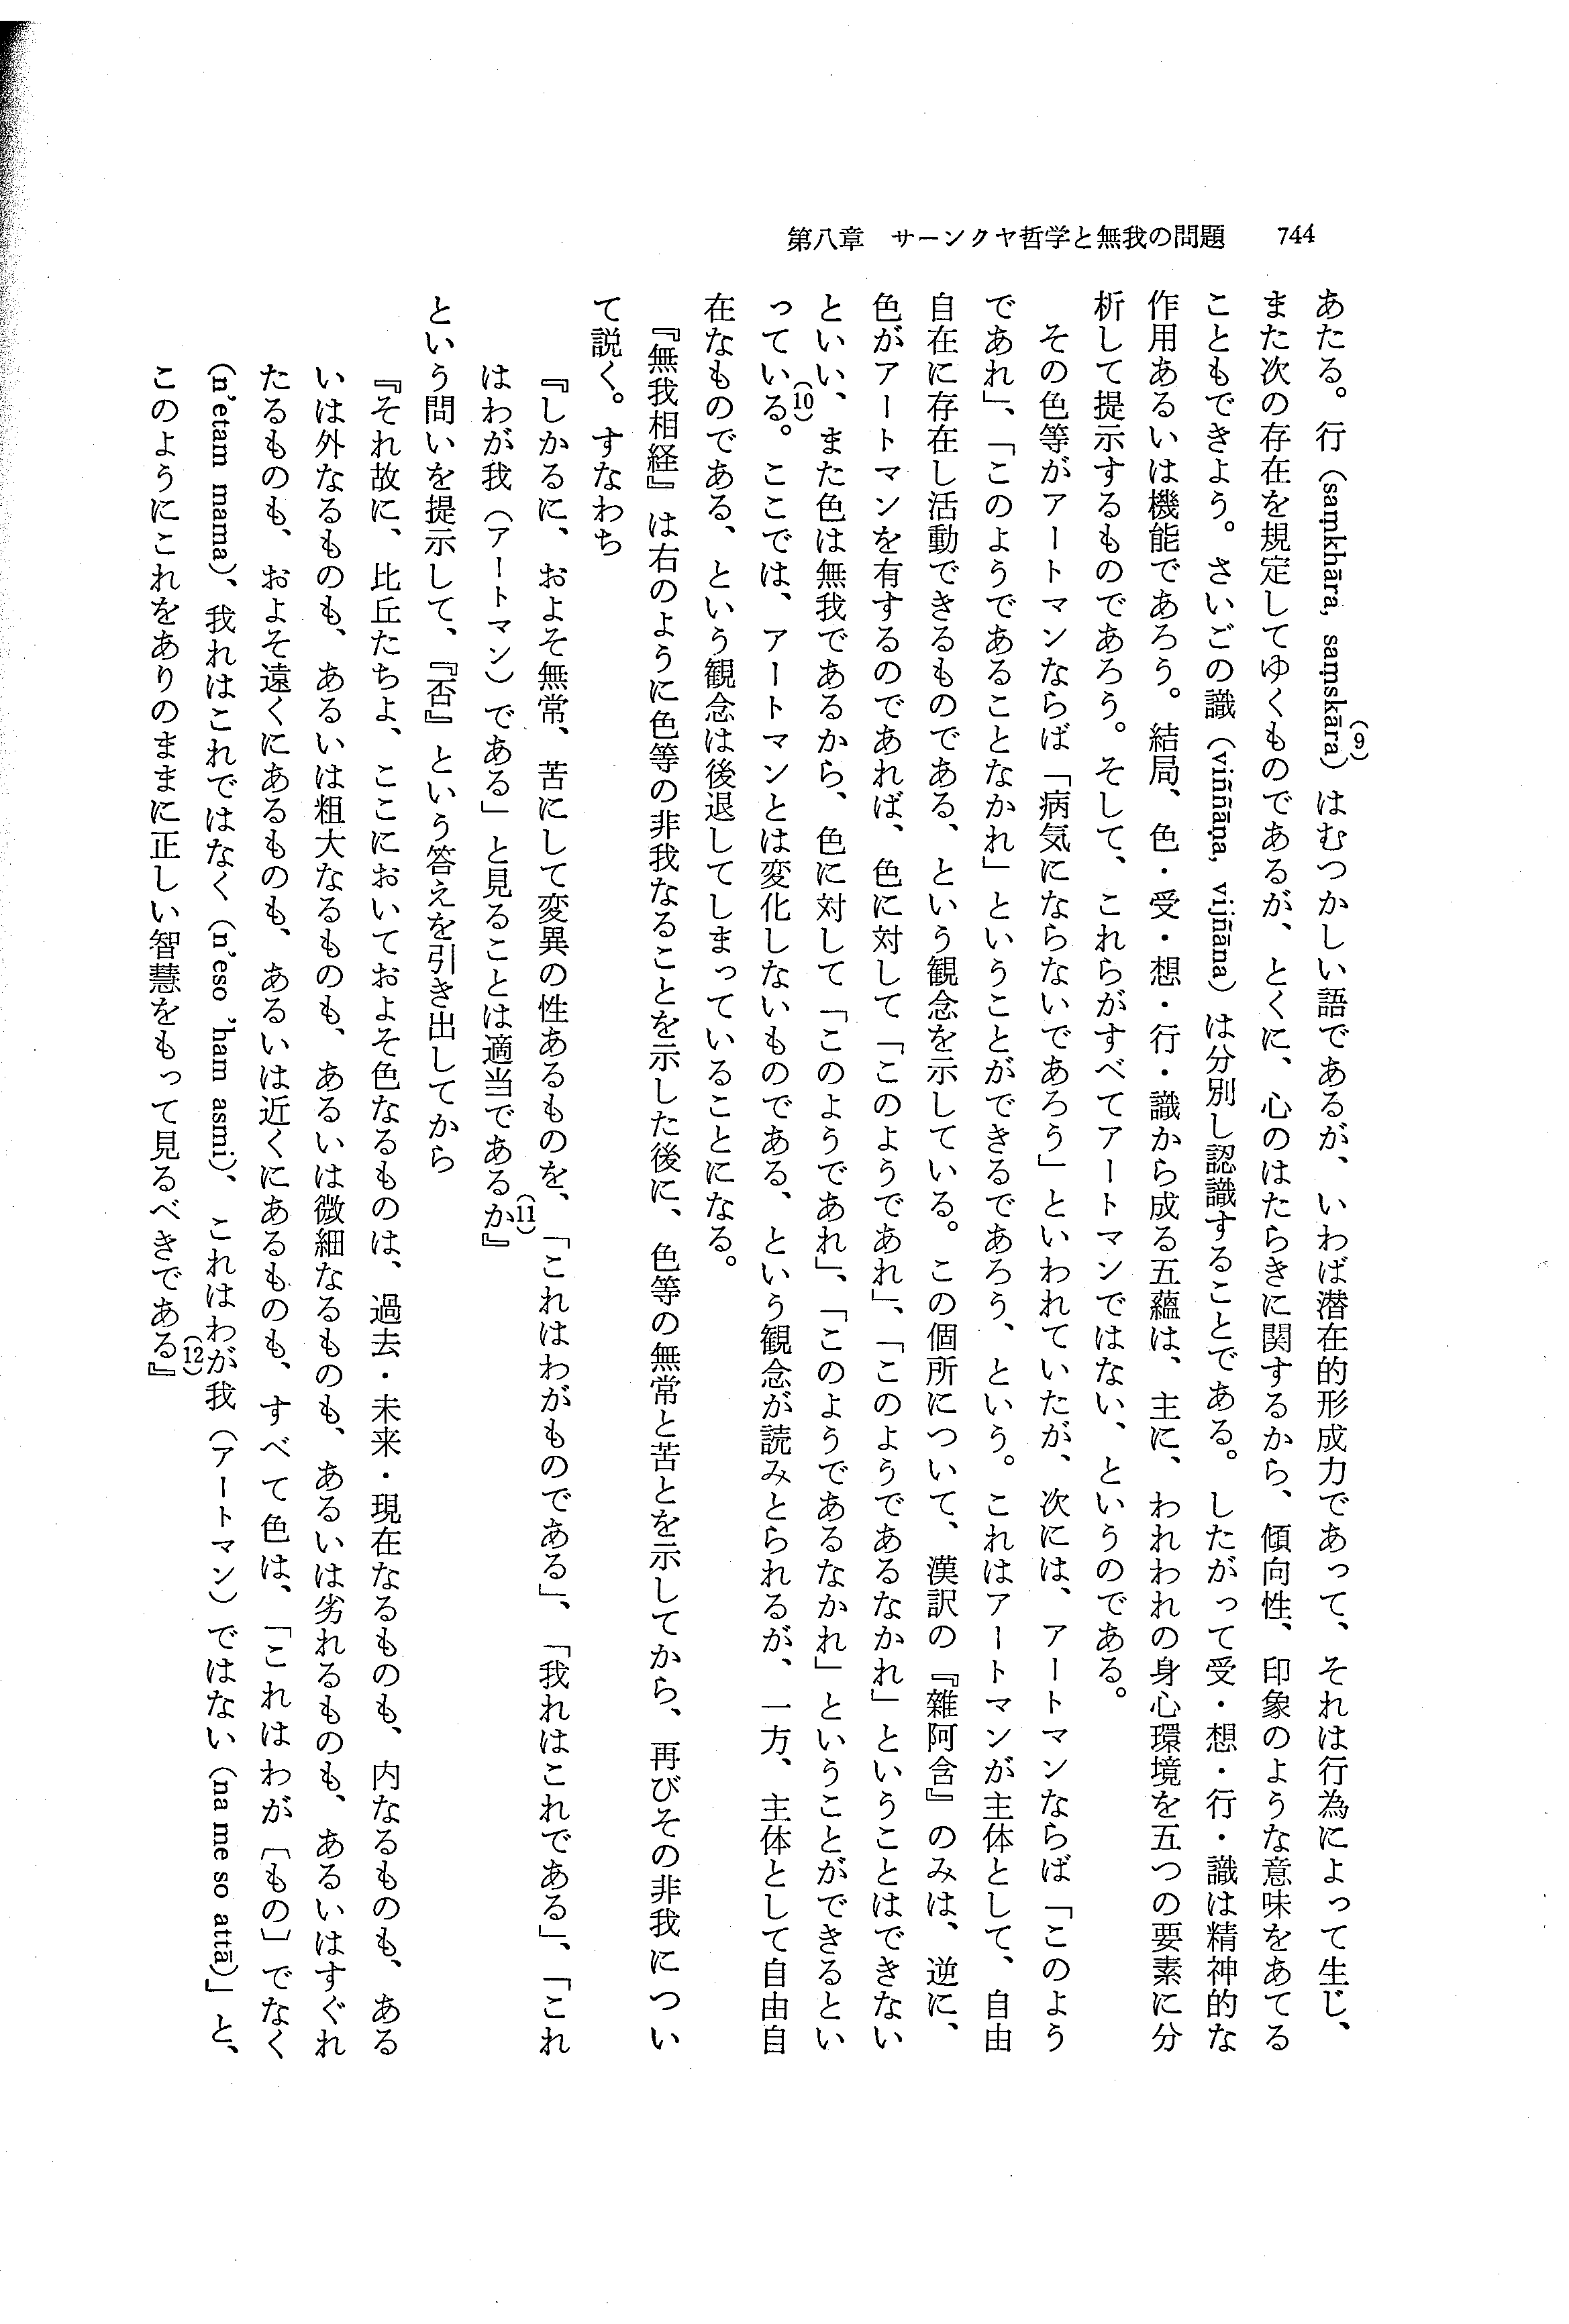 第八章　サーンクヤ哲学と無我の問題　744
あたる。行（saṃkhāra, saṃskāra）(9)はむつかしい語であるが、いわば潜在的形成力であって、それは行為によって生じ、
また次の存在を規定してゆくものであるが、とくに、心のはたらきに関するから、傾向性、印象のような意味をあてる
こともできよう。さいごの識（viññāṇa, vijñāna）は分別し認識することである。したがって受・想・行・識は精神的な
作用あるいは機能であろう。結局、色・受・想・行・識から成る五蘊は、主に、われわれの身心環境を五つの要素に分
析して提示するものであろう。そして、これらがすべてアートマンではない、というのである。
　その色等がアートマンならば「病気にならないであろう」といわれていたが、次には、アートマンならば「このよう
であれ」、「このようであることなかれ」ということができるであろう、という。これはアートマンが主体として、自由
自在に存在し活動できるものである、という観念を示している。この個所について、漢訳の『雜阿含』のみは、逆に、
色がアートマンを有するのであれば、色に対して「このようであれ」、「このようであるなかれ」ということはできない
といい、また色は無我であるから、色に対して「このようであれ」、「このようであるなかれ」ということができるとい
っている(10)。ここでは、アートマンとは変化しないものである、という観念が読みとられるが、一方、主体として自由自
在なものである、という観念は後退してしまっていることになる。
　『無我相経』は右のように色等の非我なることを示した後に、色等の無常と苦とを示してから、再びその非我につい
て説く。すなわち
『しかるに、およそ無常、苦にして変異の性あるものを、「これはわがものである」、「我れはこれである」、「これ
はわが我（アートマン）である」と見ることは適当であるか(11)』
という問いを提示して、『否』という答えを引き出してから
『それ故に、比丘たちよ、ここにおいておよそ色なるものは、過去・未来・現在なるものも、内なるものも、ある
いは外なるものも、あるいは粗大なるものも、あるいは微細なるものも、あるいは劣れるものも、あるいはすぐれ
たるものも、およそ遠くにあるものも、あるいは近くにあるものも、すべて色は、「これはわが〔もの〕でなく
（n'etam mama）、我れはこれではなく（n'eso 'ham asmi）、これはわが我（アートマン）ではない（na me so attā）」と、
このようにこれをありのままに正しい智慧をもって見るべきである(12)』